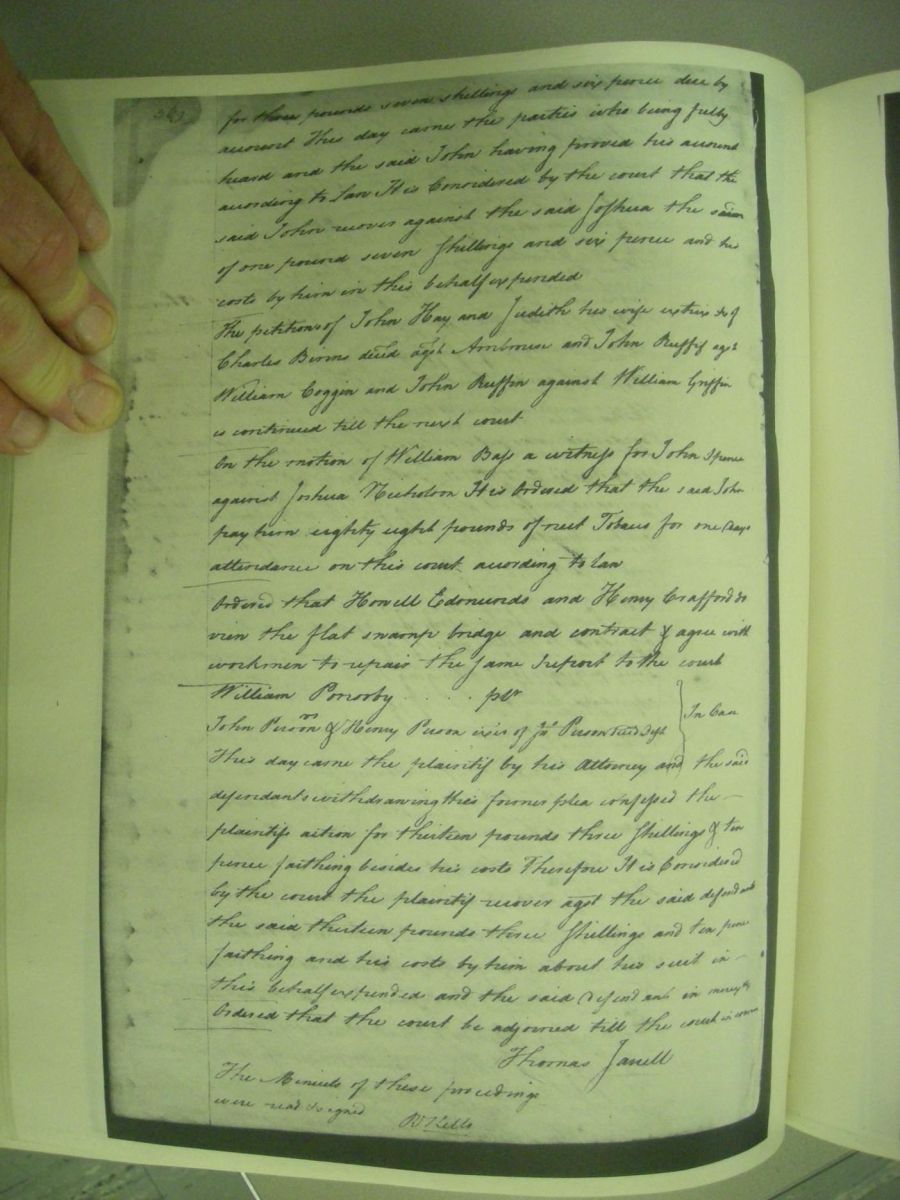 363
for three pounds seven shillings and six pence due by
account This day came the parties who being fully
heard and the said John having proved his account
according to Law It is Considered by the court that the
said John recover against the said Joshua the same
of one pound seven Shillings and six pence and his
costs by him in this behalf expended
The petitions of John Hay and Judith his wife extrix &c of
Charles Binns decd agst Ambrouse and John Ruffin agst
William Coggin and John Ruffin against William Griffin
is continued till the next court
On the motion of William Bass a witness for John
against Joshua Nicholson It is Ordered that the said John
pay him eighty eight pounds of neet Tobacco for one days
attendance on this court according to Law
Ordered that Howell Edmunds and Henry Crafford do
view the flat swamp bridge and contract & agree with
workmen to repair the same & report to the court
William Ponsonby . . . . pltr
John Person & Henry Person exrs of Jno Person decd Deft } In Case
This day came the plaintif by his Attorney and the said
defendants withdrawing their former plea confessed the —
plaintifs action for thirteen pounds three Shillings & ten
pence farthing besides his costs Therefore It is Considered
by the court the plaintif recover agst the said defendants
the said thirteen pounds three Shillings and ten pence
farthing and his costs by him about his suit in —
this behalf expended and the said Defendants in mercy &c
Ordered that the court be adjourned till the court in course
Thomas Jarrell
The Minuits of these proceedings
were read & signed
R Kello